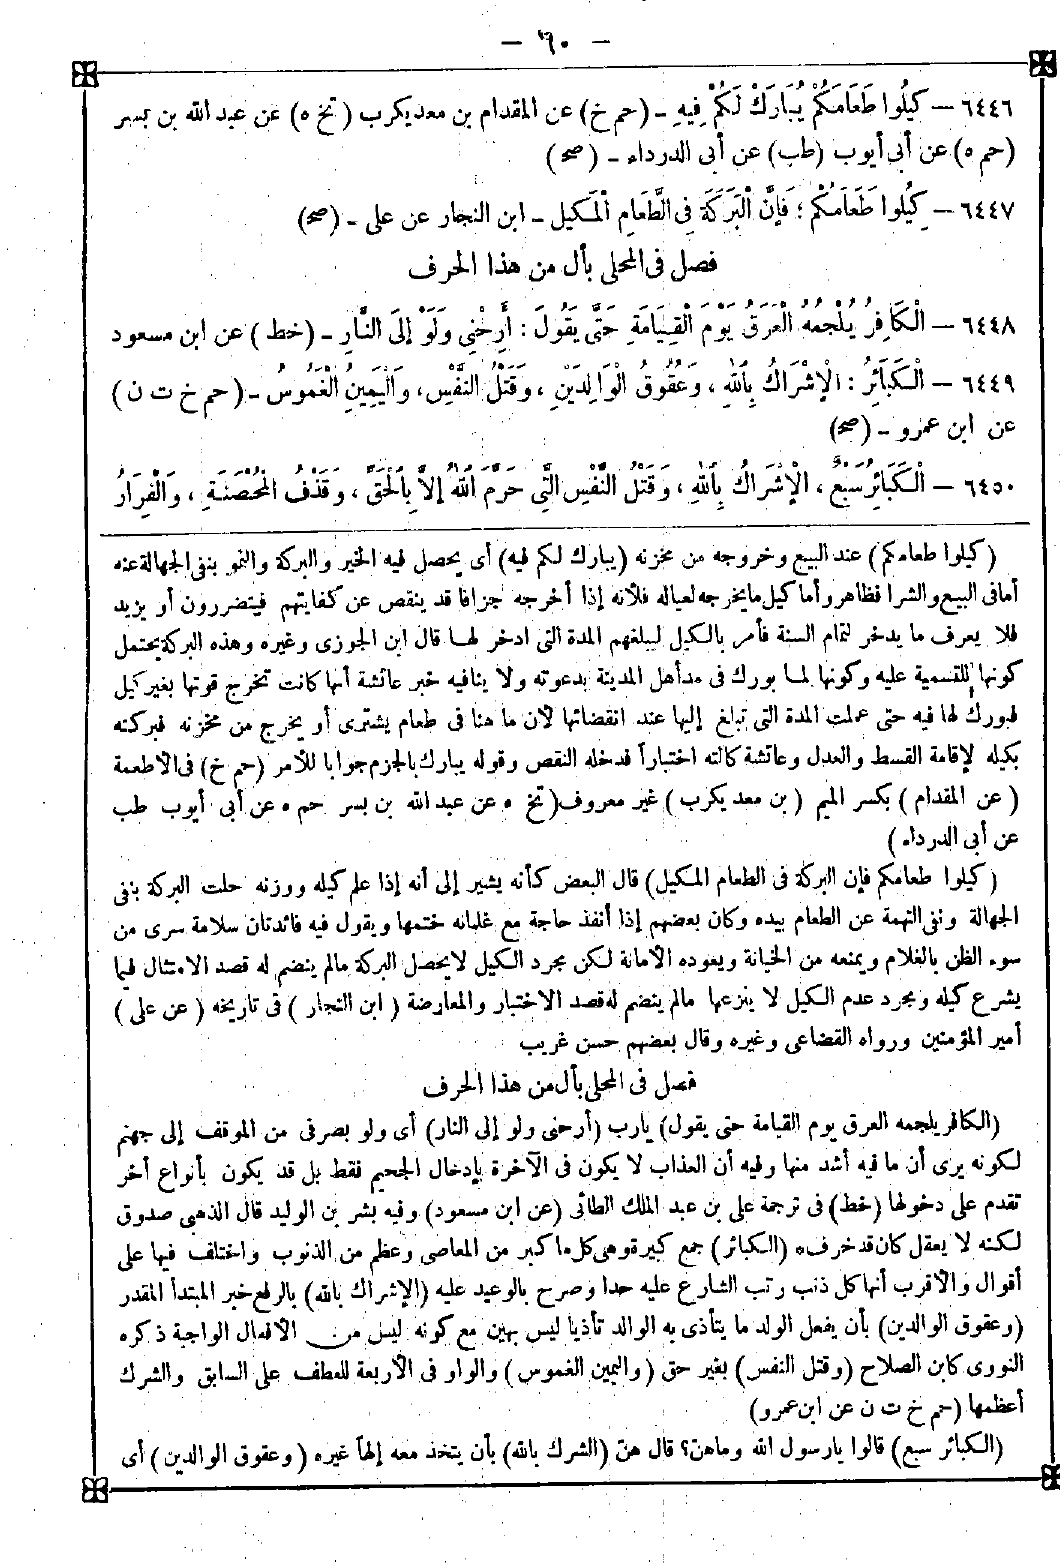 — ٦٠ —
٦٤٤٦ — كِيلُوا طَعَامَكُمْ يُبَارَكْ لَكُمْ فِيهِ ـ (حم خ) عن المقدام بن معد يكرب (تخ ه) عن عبد الله بن بسر
(حم ه) عن أبى أيوب (طب) عن أبى الدرداء ـ (صح)
٦٤٤٧ — كِيلُوا طَعَامَكُمْ؛ فَإِنَّ الْبَرَكَةَ فِى الطَّعَامِ الْمَكِيلِ ـ ابن النجار عن على ـ (صح)
فصل فى المحلى بأل من هذا الحرف
٦٤٤٨ — الْكَافِرُ يُلْجِمُهُ الْعَرَقُ يَوْمَ الْقِيَامَةِ حَتَّى يَقُولَ: أَرِحْنِى وَلَوْ إِلَى النَّارِ ـ (خط) عن ابن مسعود
٦٤٤٩ — الْكَبَائِرُ: الْإِشْرَاكُ بِاللهِ، وَعُقُوقُ الْوَالِدَيْنِ، وَقَتْلُ النَّفْسِ، وَالْيَمِينُ الْغَمُوسُ ـ (حم خ ت ن)
عن ابن عمرو ـ (صح)
٦٤٥٠ — الْكَبَائِرُ سَبْعٌ، الْإِشْرَاكُ بِاللهِ، وَقَتْلُ النَّفْسِ الَّتِى حَرَّمَ اللهُ إِلَّا بِالْحَقِّ، وَقَذْفُ الْمُحْصَنَةِ، وَالْفِرَارُ
(كيلوا طعامكم) عند البيع وخروجه من مخزنه (يبارك لكم فيه) أى يحصل فيه الخير والبركة والنمو بنفى الجهالة عنه
أما فى البيع والشرا فظاهر وأما كيل ما يخرجه لعياله فلأنه إذا أخرجه جزافا قد ينقص عن كفايتهم فيتضررون أو يزيد
فلا يعرف ما يدخر لتمام السنة فأمر بالكيل ليبلغهم المدة التى ادخر لها قال ابن الجوزى وغيره وهذه البركة يحتمل
كونها للتسمية عليه وكونها لما بورك فى مد أهل المدينة بدعوته ولا ينافيه خبر عائشة أنها كانت تخرج قوتها بغير كيل
فبورك لها فيه حتى عملت المدة التى تبلغ إليها عند انقضائها لأن ما هنا فى طعام يشترى أو يخرج من مخزنه فبركته
بكيله لإقامة القسط والعدل وعائشة كالته اختباراً فدخله النقص وقوله يبارك بالجزم جوابا للأمر (حم خ) فى الأطعمة
(عن المقدام) بكسر الميم (بن معد يكرب) غير معروف (تخ ه عن عبد الله بن بسر حم ه عن أبى أيوب طب
عن أبى الدرداء)
(كيلوا طعامكم فإن البركة فى الطعام المكيل) قال البعض كأنه يشير إلى أنه إذا علم كيله ووزنه حلت البركة بنفى
الجهالة ونفى التهمة عن الطعام بيده وكان بعضهم إذا أنفذ حاجة مع غلمانه ختمها ويقول فيه فائدتان سلامة سرى من
سوء الظن بالغلام ويمنعه من الخيانة ويعوده الأمانة لكن مجرد الكيل لا يحصل البركة مالم ينضم له قصد الامتثال فيما
يشرع كيله ومجرد عدم الكيل لا ينزعها مالم ينضم له قصد الاختبار والمعارضة (ابن النجار) فى تاريخه (عن على)
أمير المؤمنين ورواه القضاعى وغيره وقال بعضهم حسن غريب
فصل فى المحلى بأل من هذا الحرف
(الكافر يلجمه العرق يوم القيامة حتى يقول) يارب (أرحنى ولو إلى النار) أى ولو بصرفى من الموقف إلى جهنم
لكونه يرى أن ما فيه أشد منها وفيه أن العذاب لا يكون فى الآخرة بإدخال الجحيم فقط بل قد يكون بأنواع أخر
تقدم على دخولها (خط) فى ترجمة على بن عبد الملك الطائى (عن ابن مسعود) وفيه بشر بن الوليد قال الذهبى صدوق
لكنه لا يعقل كان قد خرف ه (الكبائر) جمع كبيرة وهى كل ما كبر من المعاصى وعظم من الذنوب واختلف فيها على
أقوال والأقرب أنها كل ذنب رتب الشارع عليه حدا وصرح بالوعيد عليه (الإشراك بالله) بالرفع خبر المبتدأ المقدر
(وعقوق الوالدين) بأن يفعل الولد ما يتأذى به الوالد تأذيا ليس بهين مع كونه ليس من الأفعال الواجبة ذكره
النووى كابن الصلاح (وقتل النفس) بغير حق (واليمين الغموس) والواو فى الأربعة للعطف على السابق والشرك
أعظمها (حم خ ت ن عن ابن عمرو)
(الكبائر سبع) قالوا يارسول الله وماهن؟ قال هنّ (الشرك بالله) بأن يتخذ معه إلهاً غيره (وعقوق الوالدين) أى